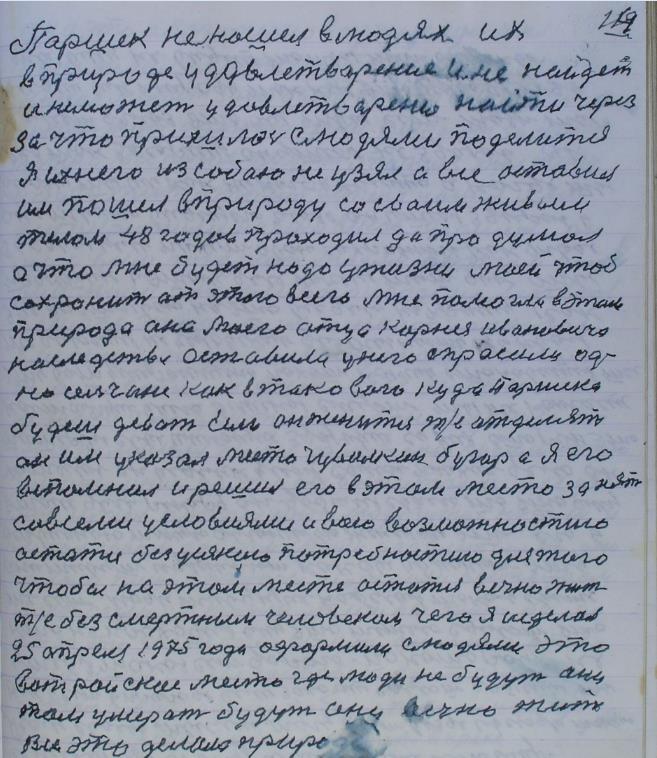 119
Паршек не ношел в людях их
в природе удовлетварение и не найдет
и не может удовлетварению найти через
за что пришлось с людями поделится
Я их него из собаю не узял а все оставил
им пошел в природу со своим живым
телом 48 годов проходил да продумал
а что мне будет надо у жизни моей чтоб
сохранит ат этого всего мне помогла в этом
природа ана моего отца Корнея Ивановича
наследства оставила у него спрасили од-
но селчане как в такового куда Паршека
будеш девать если он женится т/е отделят
он им указал место Чувилкин бугор а я его
вспомнил и решил его в этом место занять
со всеми условиями иваго возможностию
астатся без усякого потребностию для того
чтобы на этом месте остатся вечно жит
т/е без смертным человеком чего я и сделал
25 апреля 1975 года оформили с людями это
вот райское место где люди не будут ани
там умерат будут они вечно жить
Все это делала приро